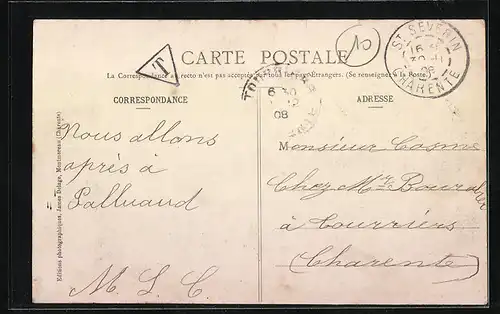 T
10
CARTE POSTALE
ST SEVERIN
16
30
08
CHARENTE
La Correspondance au recto n'est pas acceptée par tous les Pays Étrangers. (Se renseigner à la Poste.)
6 30
08
CORRESPONDANCE
ADRESSE
Nous allons
après à
Palluaud
M. L. C.
Editions photographiques, James Dolage, Montmoreau (Charente)
Monsieur Cosme
Chez Mr
à Courriers
(Charente)